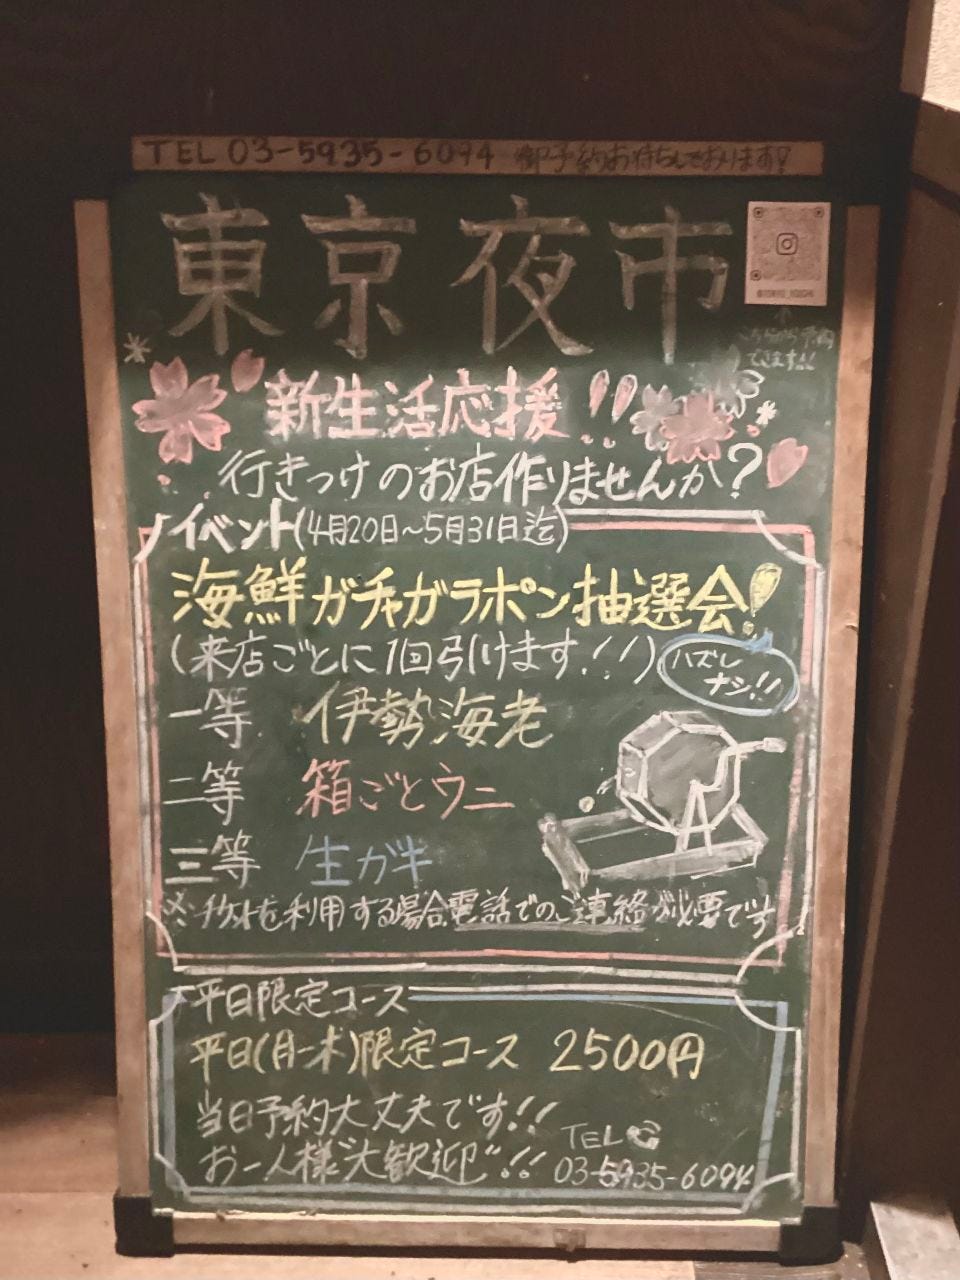 TEL 03-5935-6094 御予約お待ちしております!
東京夜市
@TOKYO_YOICHI
こちらから予約
できます!!
新生活応援!!
行きつけのお店作りませんか?
イベント(4月20日~5月31日迄)
海鮮ガチャガラポン抽選会!
(来店ごとに1回引けます!!)
ハズレ
ナシ!!
一等 伊勢海老
二等 箱ごとウニ
三等 生ガキ
※チケットを利用する場合電話でのご連絡が必要です
平日限定コース
平日(月-木)限定コース 2500円
当日予約大丈夫です!!
お一人様"大歓迎"!!
TEL
03-5935-6094